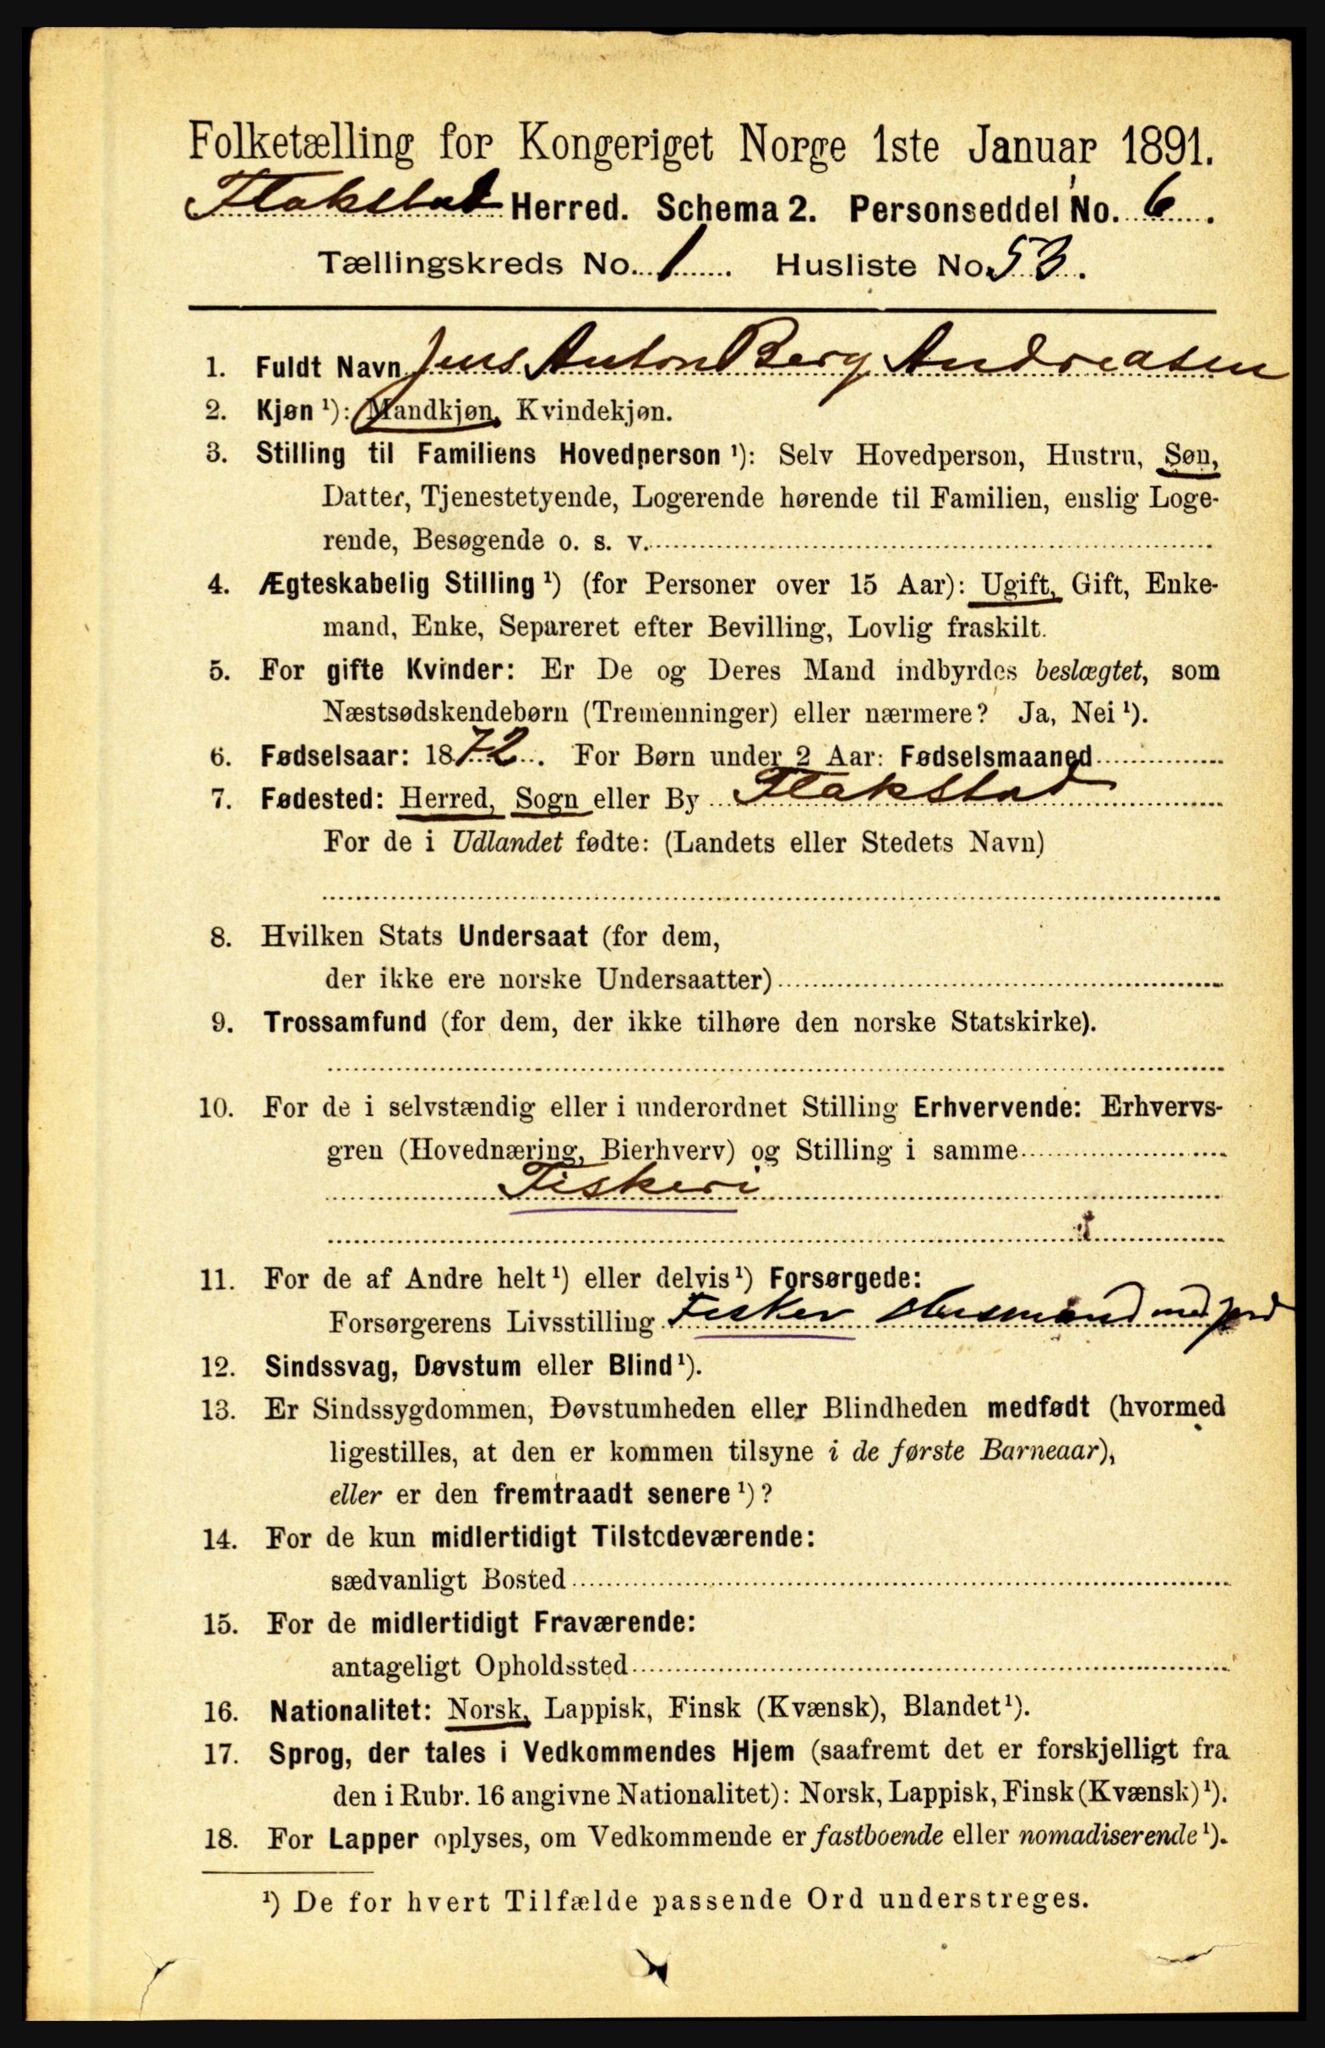 Folketælling for Kongeriget Norge 1ste Januar 1891.
Flakstad Herred. Schema 2. Personseddel No. 6.
Tællingskreds No. 1. Husliste No. 53.
1. Fuldt Navn Jens Anton Berg Andreasen
2. Kjøn ¹): Mandkjøn, Kvindekjøn.
3. Stilling til Familiens Hovedperson ¹): Selv Hovedperson, Hustru, Søn,
Datter, Tjenestetyende, Logerende hørende til Familien, enslig Loge-
rende, Besøgende o. s. v.
4. Ægteskabelig Stilling ¹) (for Personer over 15 Aar): Ugift, Gift, Enke-
mand, Enke, Separeret efter Bevilling, Lovlig fraskilt.
5. For gifte Kvinder: Er De og Deres Mand indbyrdes beslægtet, som
Næstsødskendebørn (Tremenninger) eller nærmere? Ja, Nei ¹).
6. Fødselsaar: 1872. For Børn under 2 Aar: Fødselsmaaned
7. Fødested: Herred, Sogn eller By Flakstad
For de i Udlandet fødte: (Landets eller Stedets Navn)
8. Hvilken Stats Undersaat (for dem,
der ikke ere norske Undersaatter)
9. Trossamfund (for dem, der ikke tilhøre den norske Statskirke).
10. For de i selvstændig eller i underordnet Stilling Erhvervende: Erhvervs-
gren (Hovednæring, Bierhverv) og Stilling i samme
Fiskeri
11. For de af Andre helt ¹) eller delvis ¹) Forsørgede:
Forsørgerens Livsstilling Fisker Husmand med jord
12. Sindssvag, Døvstum eller Blind ¹).
13. Er Sindssygdommen, Døvstumheden eller Blindheden medfødt (hvormed
ligestilles, at den er kommen tilsyne i de første Barneaar),
eller er den fremtraadt senere ¹)?
14. For de kun midlertidigt Tilstedeværende:
sædvanligt Bosted
15. For de midlertidigt Fraværende:
antageligt Opholdssted
16. Nationalitet: Norsk, Lappisk, Finsk (Kvænsk), Blandet ¹).
17. Sprog, der tales i Vedkommendes Hjem (saafremt det er forskjelligt fra
den i Rubr. 16 angivne Nationalitet): Norsk, Lappisk, Finsk (Kvænsk) ¹).
18. For Lapper oplyses, om Vedkommende er fastboende eller nomadiserende ¹).
¹) De for hvert Tilfælde passende Ord understreges.